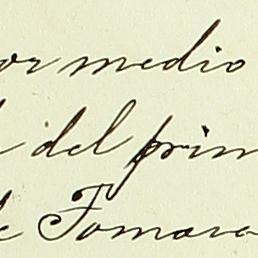 or medio
del prim
e Tomaro